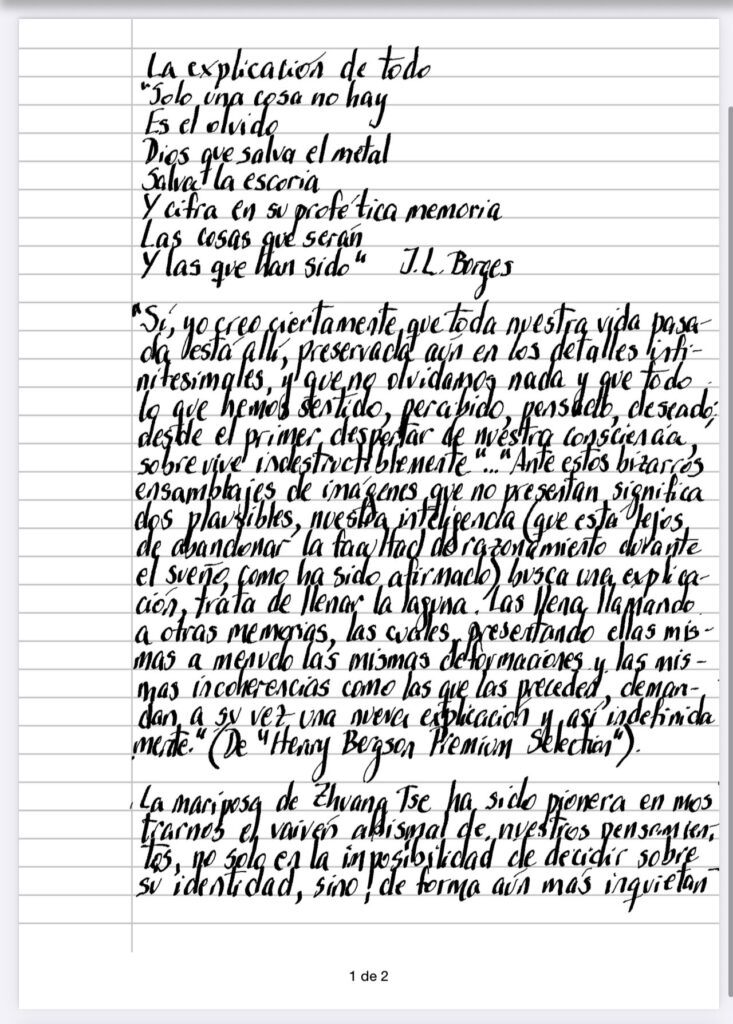 La explicación de todo
"Solo una cosa no hay
Es el olvido
Dios que salva el metal
Salva la escoria
Y cifra en su profética memoria
Las cosas que serán
Y las que han sido" J.L. Borges
"Sí, yo creo ciertamente que toda nuestra vida pasa-
da está allí, preservada aún en los detalles infi-
nitesimales, y que no olvidamos nada y que todo
lo que hemos sentido, percibido, pensado, deseado,
desde el primer despertar de nuestra consciencia,
sobrevive indestructiblemente"..."Ante estos bizarros
ensamblajes de imágenes que no presentan significa
dos plausibles, nuestra inteligencia (que está lejos
de abandonar la facultad de razonamiento durante
el sueño, como ha sido afirmado) busca una explica-
ción, trata de llenar la laguna. Las llena llamando
a otras memorias, las cuales, presentando ellas mis-
mas a menudo las mismas deformaciones y las mis-
mas incoherencias como las que las preceded, deman-
dan a su vez una nueva explicación y así indefinida
mente." (De "Henry Bergson Premium Selection").
La mariposa de Zhuang Tse ha sido pionera en mos
trarnos el vaivén abismal de nuestros pensamien-
tos, no solo en la imposibilidad de decidir sobre
su identidad, sino, de forma aún más inquietan
1 de 2